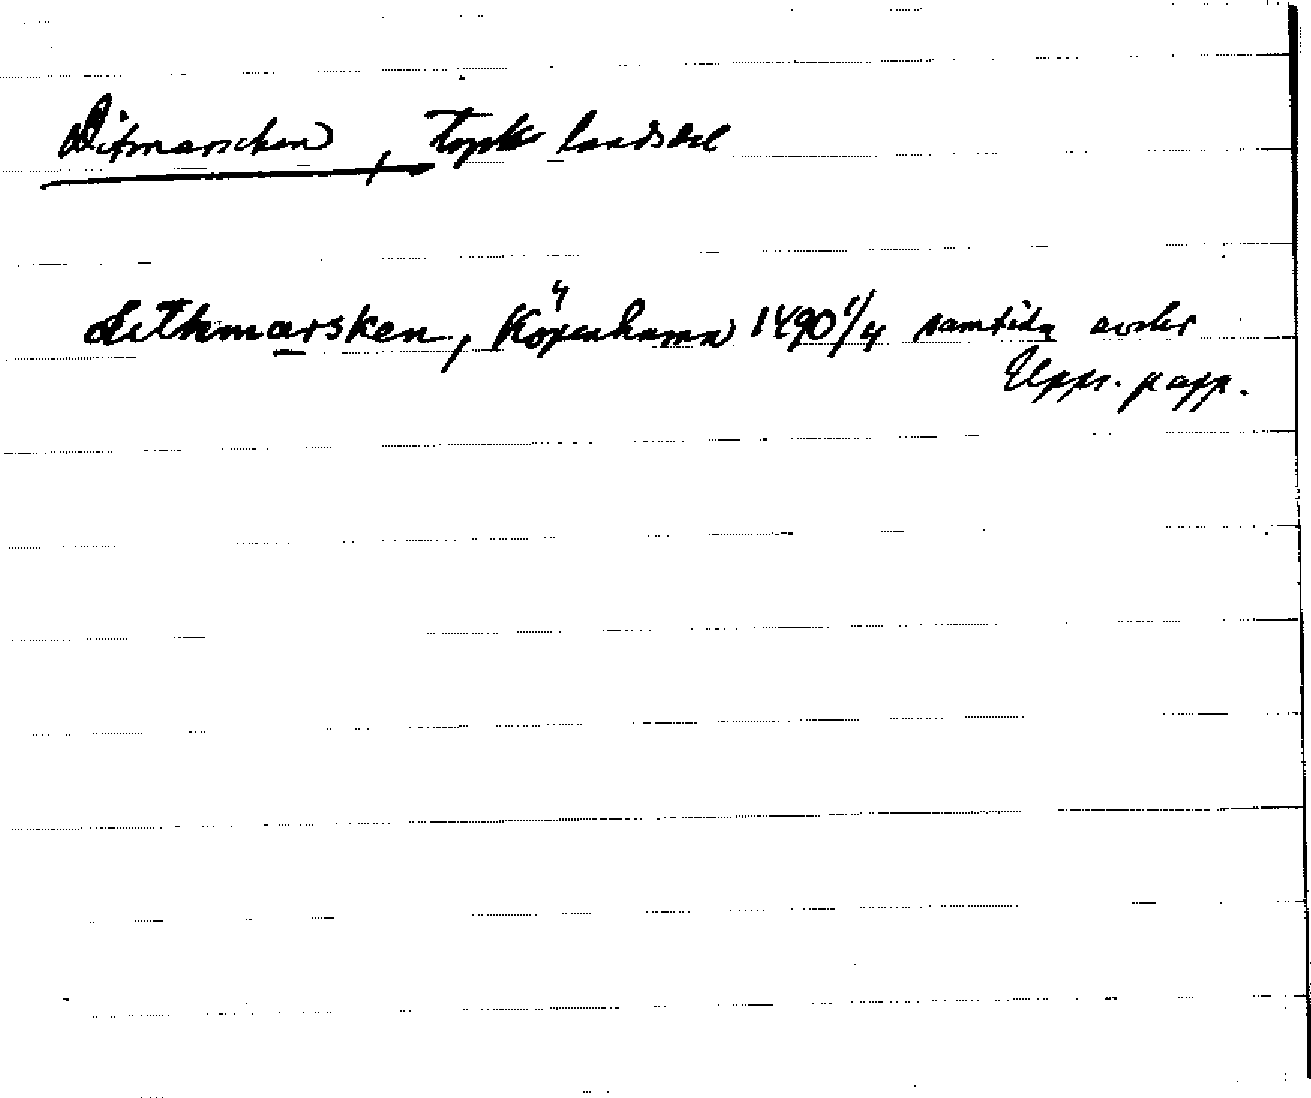 Ditmarschen, tysk landsdel
detkmarsken, Köpenhamn 1490 1/4 samtida avskr
Upps. papp.